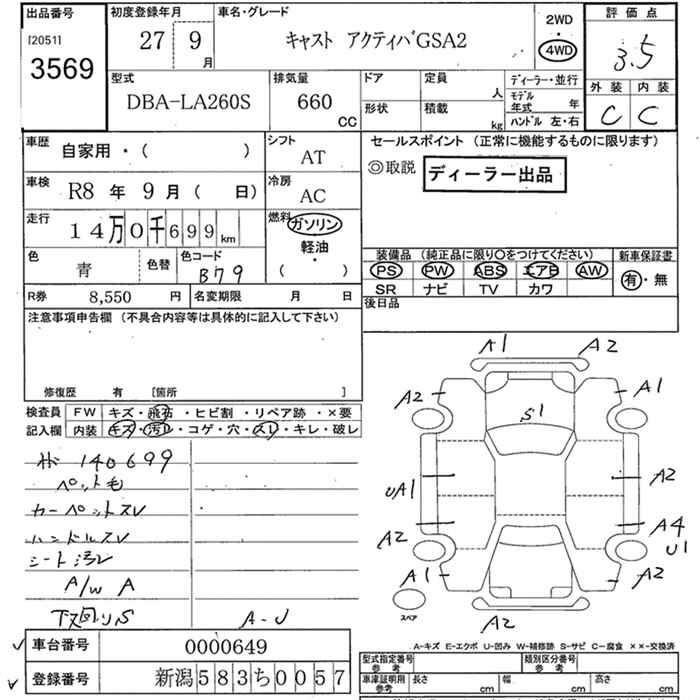 出品番号
[2051]
3569
初度登録年月
27 9
月
車名・グレード
キャスト アクティバGSA2
2WD
・
4WD
評価点
3.5
外装 内装
C C
型式
DBA-LA260S
排気量
660
CC
ドア
形状
定員
人
積載
kg
ディーラー・並行
モデル年式 年
ハンドル 左・右
車歴
自家用・( )
シフト
AT
車検
R8 年 9 月 ( 日)
冷房
AC
走行
14万0千699 km
燃料
ガソリン
軽油
・
( )
色
青
色替
色コード
B79
R券 8,550 円
名変期限 月 日
セールスポイント (正常に機能するものに限ります)
◎取説
ディーラー出品
装備品 (純正品に限り○をつけてください)
新車保証書
PS PW ABS エアB AW
有・無
SR ナビ TV カワ
後日品
注意事項申告欄 (不具合内容等は具体的に記入して下さい)
修復歴 有 [箇所 ]
検査員
記入欄
FW キズ・飛石・ヒビ割・リペア跡・×要
内装 キズ・汚れ・コゲ・穴・スレ・キレ・破レ
140699
ペット毛
カーペットスレ
ハンドルスレ
シート汚レ
A/W A
下回りS
A-U
A1 A2
A2 A1
S1
UA1 A2
A2 A4
U1
A1 A2
A2
スペア
A-キズ E-エクボ U-凹み W-補修跡 S-サビ C-腐食 ××-交換済
車台番号 0000649
登録番号 新潟583ち0057
型式指定番号
参考
類別区分番号
参考
車庫証明用
参考
長さ cm
幅 cm
高さ cm